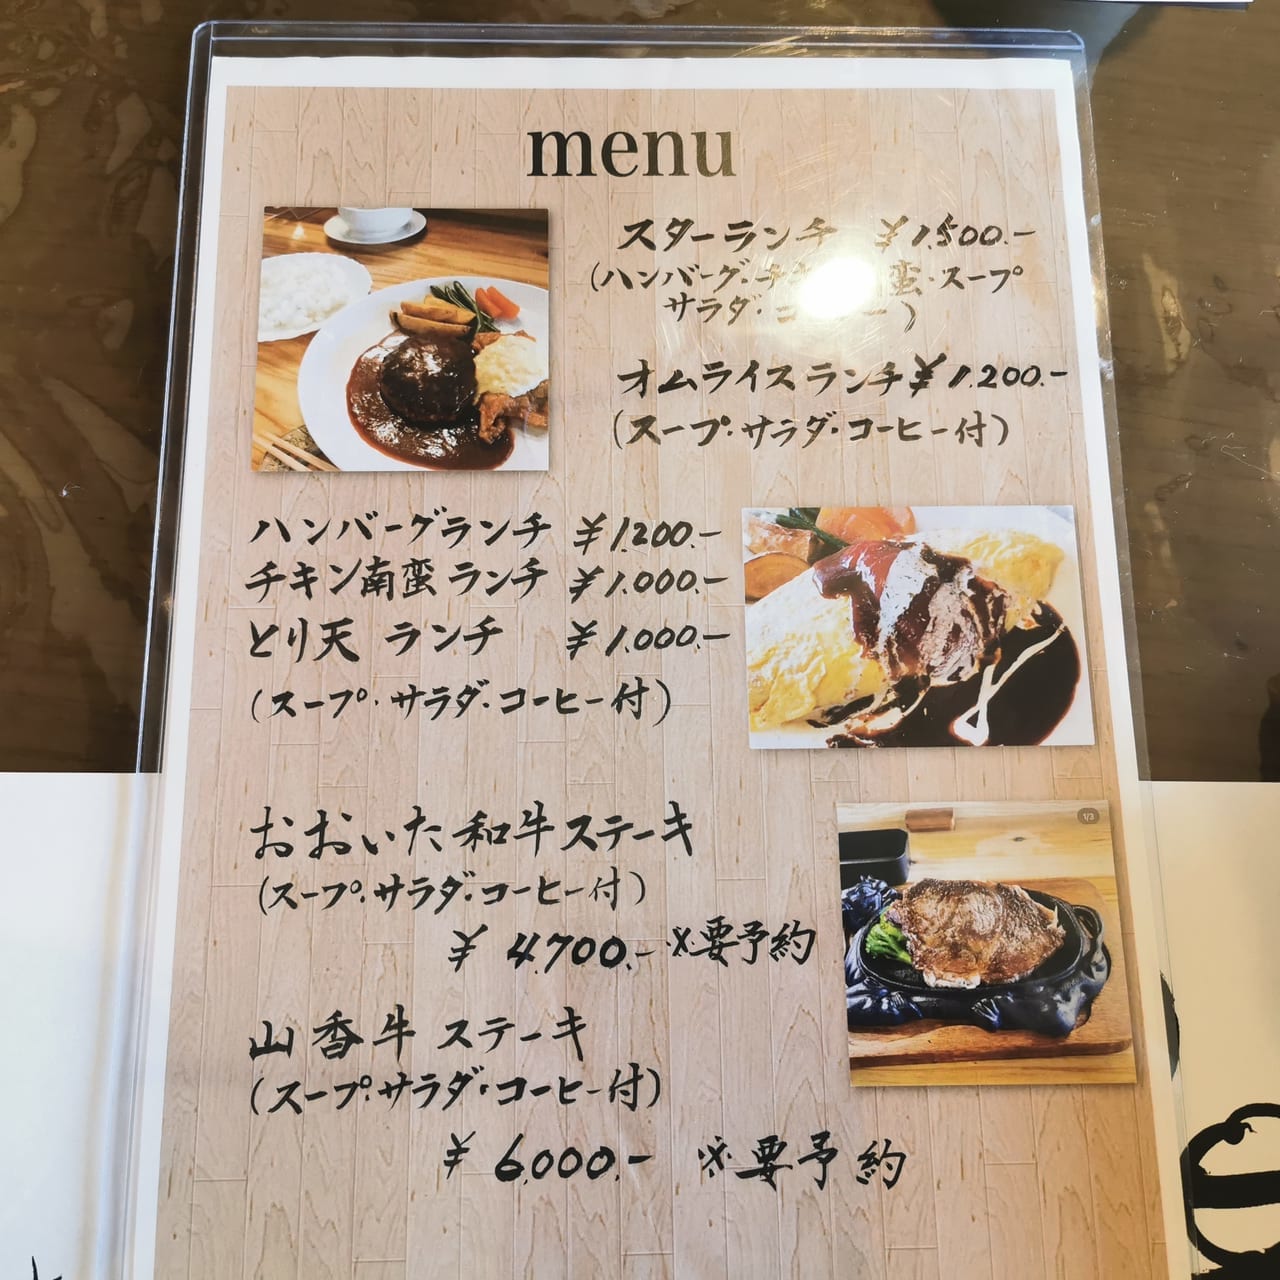 menu
スターランチ ¥1.500.-
(ハンバーグ・チキ 蛮・スープ
サラダ・コーヒー)
オムライスランチ ¥1.200.-
(スープ・サラダ・コーヒー付)
ハンバーグランチ ¥1.200.-
チキン南蛮ランチ ¥1.000.-
とり天 ランチ ¥1.000.-
(スープ・サラダ・コーヒー付)
おおいた和牛ステーキ
(スープ・サラダ・コーヒー付)
¥4.700.- ※要予約
山香牛 ステーキ
(スープ・サラダ・コーヒー付)
¥6.000.- ※要予約
1/3